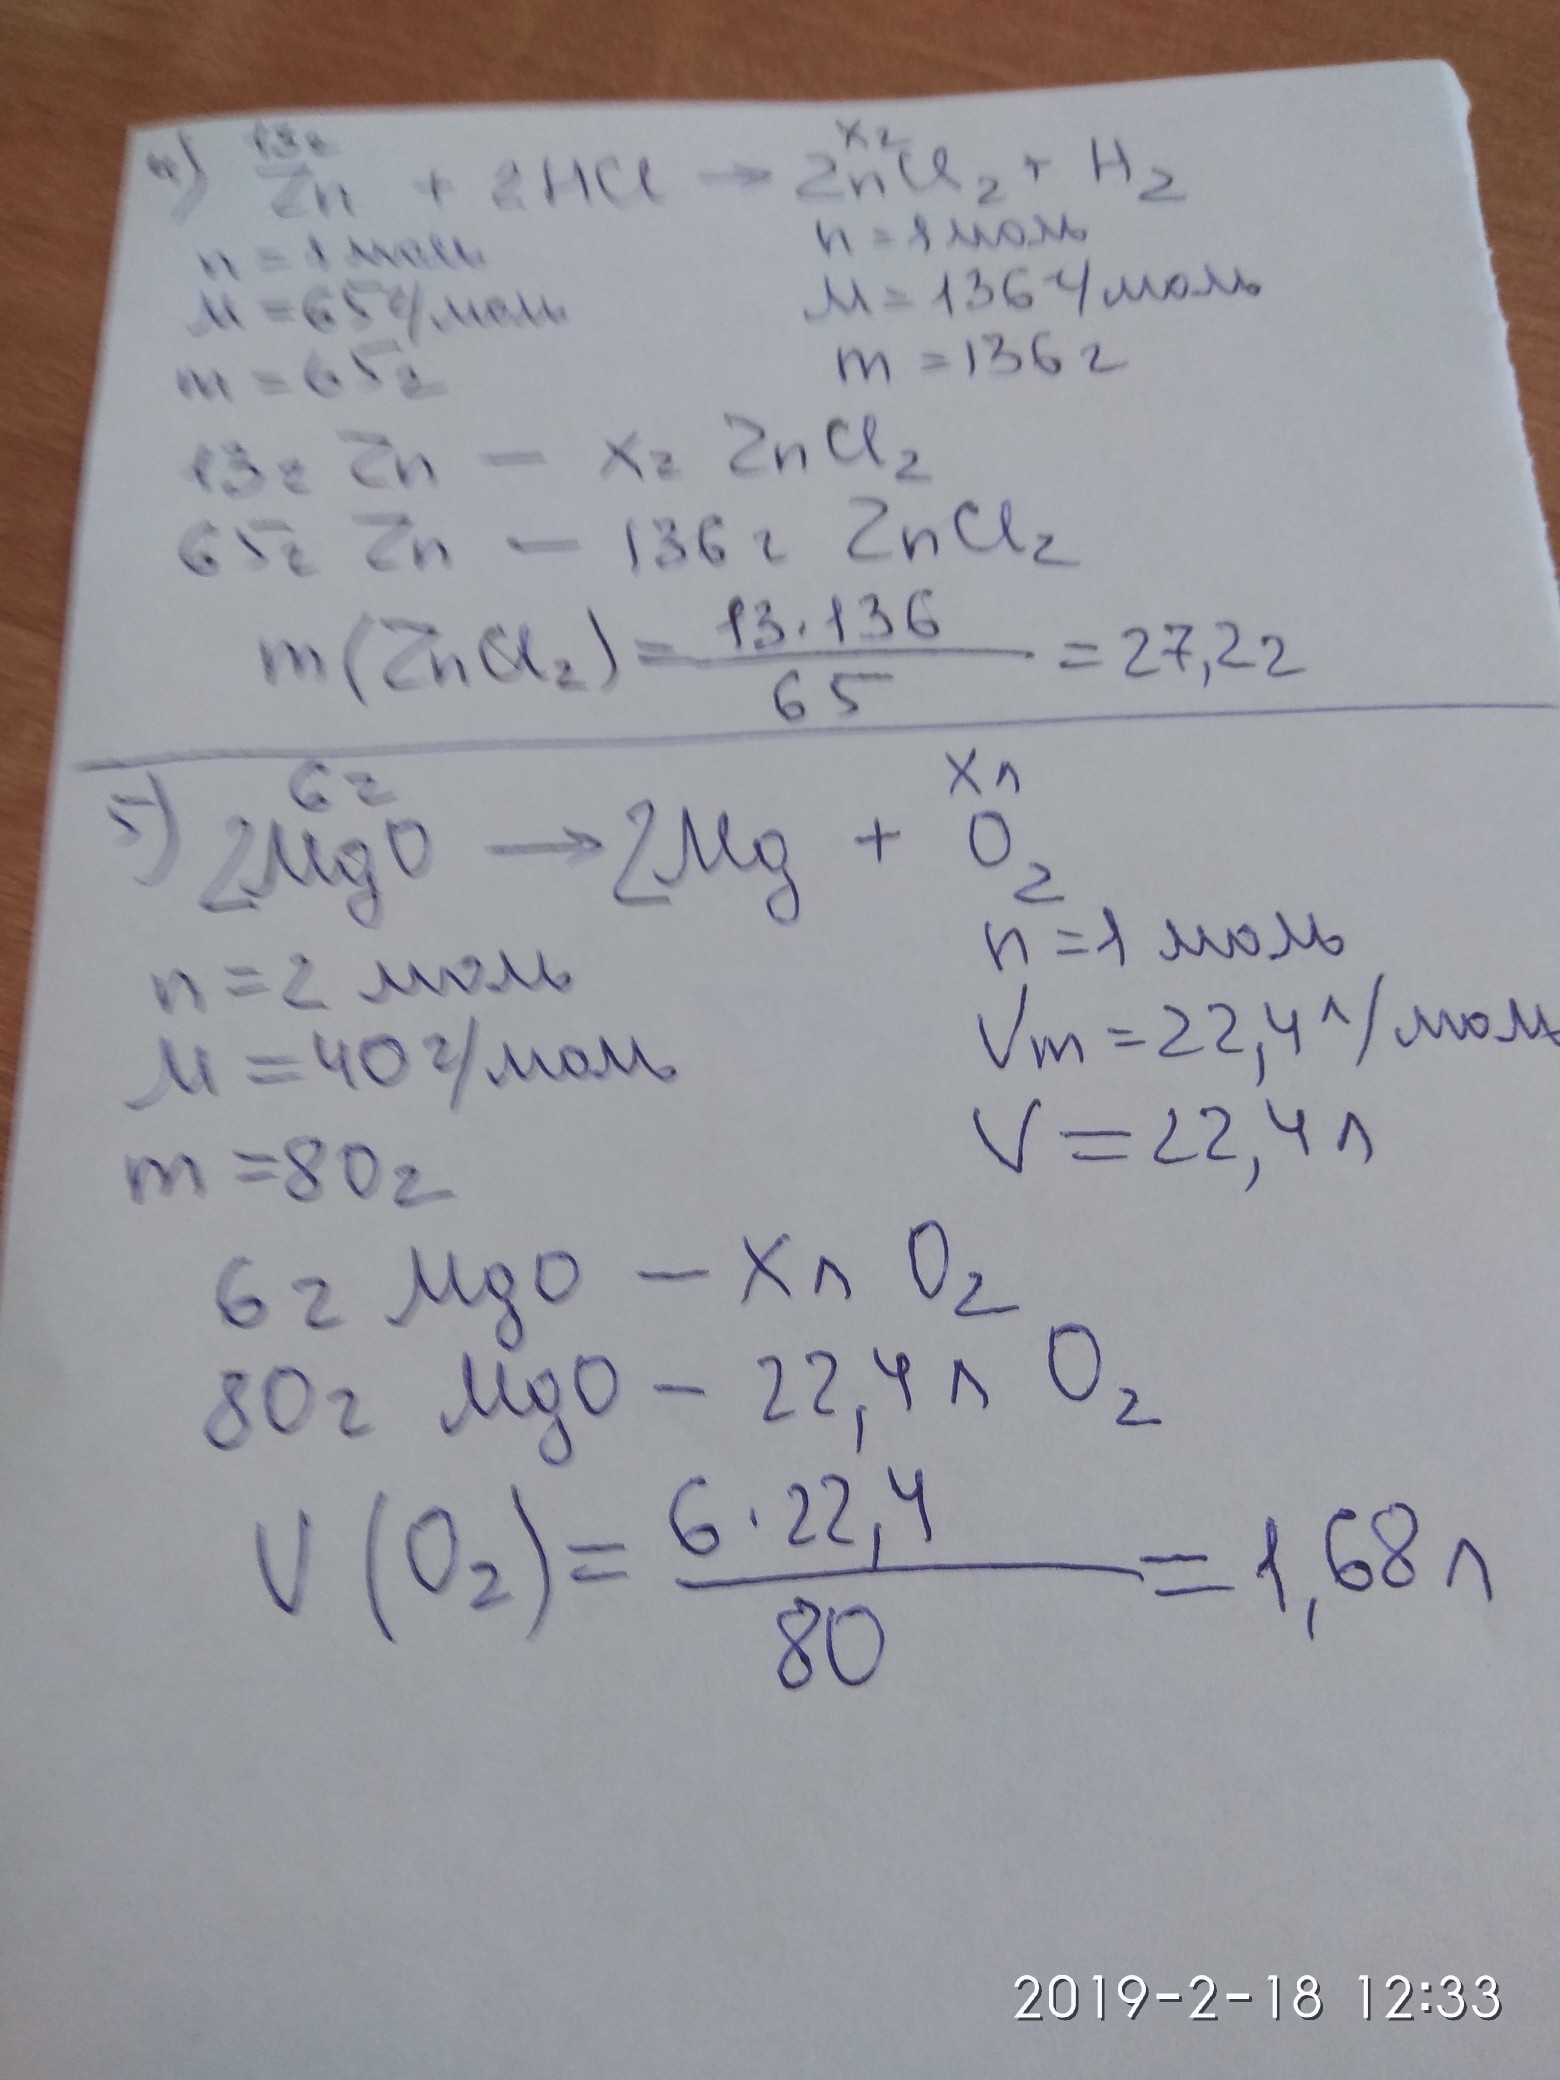 4) 13г xг
Zn + 2HCl → ZnCl₂ + H₂
n = 1 моль n = 1 моль
M = 65 г/моль M = 136 г/моль
m = 65г m = 136 г
13г Zn — xг ZnCl₂
65г Zn — 136 г ZnCl₂
m(ZnCl₂) = 13·136 / 65 = 27,2г
5) 6г xл
2MgO → 2Mg + O₂
n = 2 моль n = 1 моль
M = 40 г/моль Vm = 22,4 л/моль
m = 80г V = 22,4 л
6г MgO — xл O₂
80г MgO — 22,4 л O₂
V(O₂) = 6·22,4 / 80 = 1,68 л
2019-2-18 12:33